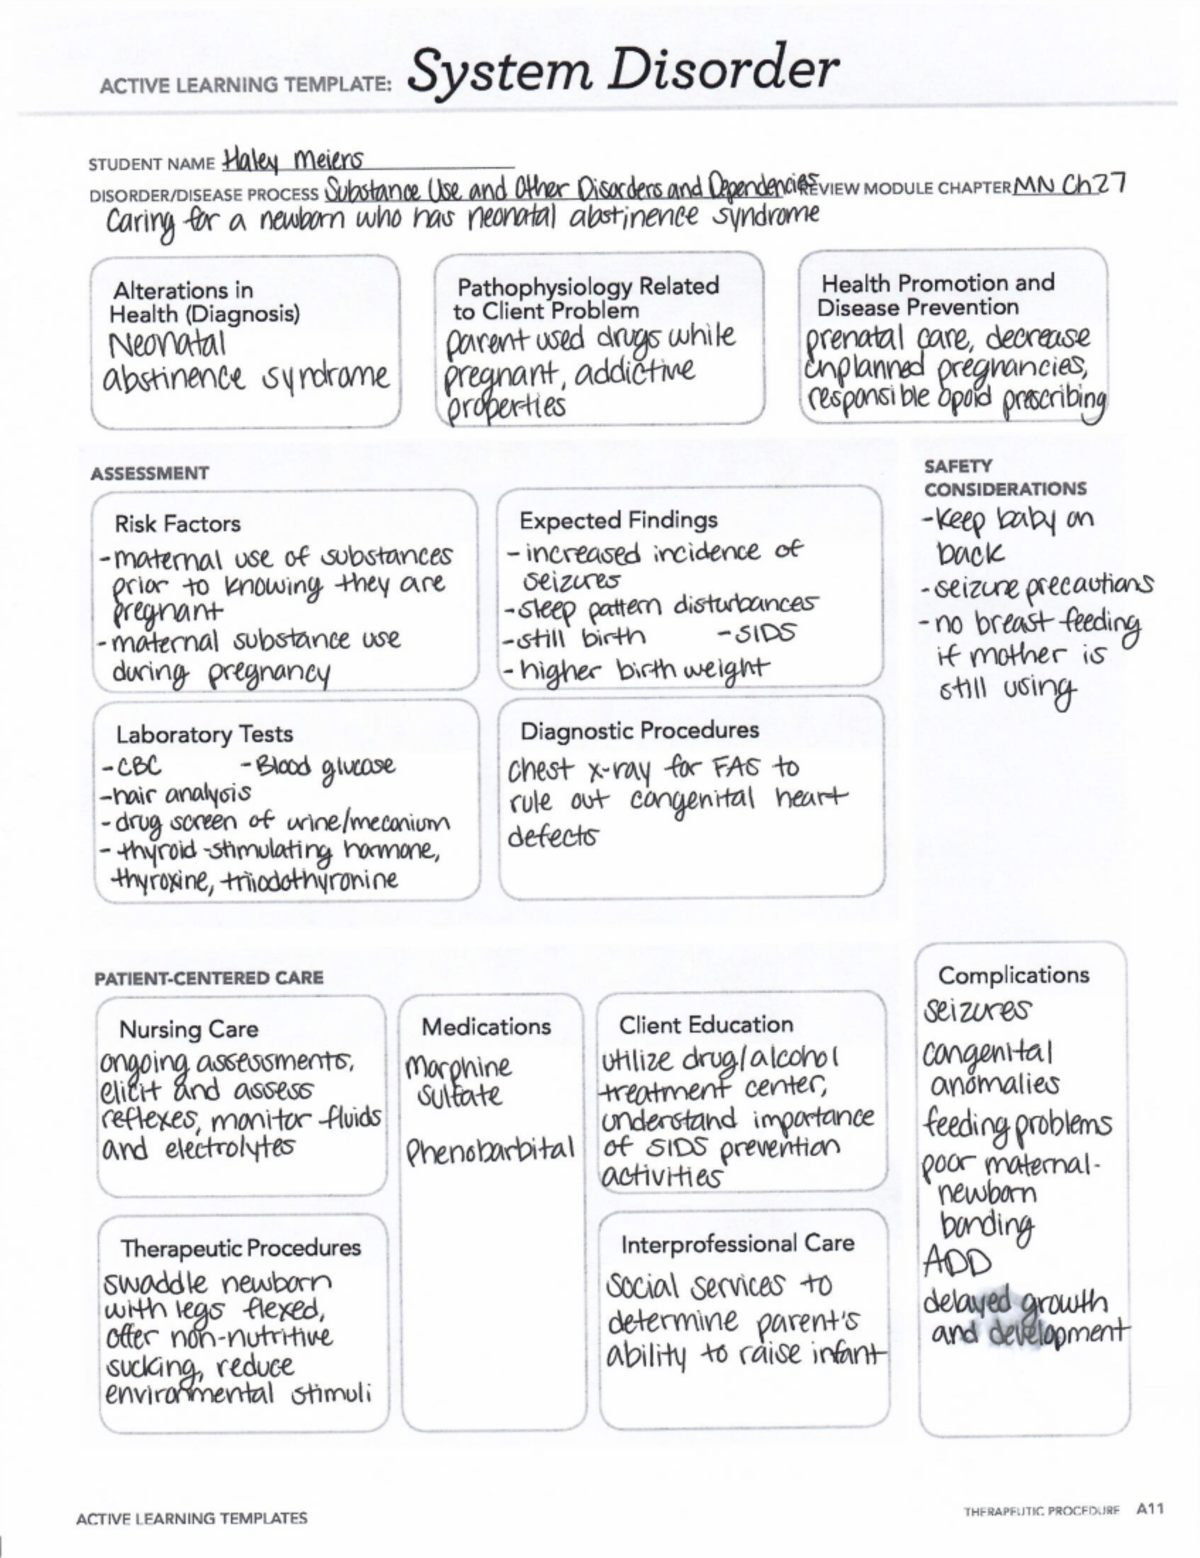 ACTIVE LEARNING TEMPLATE: System Disorder
STUDENT NAME Haley Meiers
DISORDER/DISEASE PROCESS Substance Use and Other Disorders and Dependencies REVIEW MODULE CHAPTER MN Ch 27
Caring for a newborn who has neonatal abstinence syndrome
Alterations in
Health (Diagnosis)
Neonatal
abstinence syndrome
Pathophysiology Related
to Client Problem
parent used drugs while
pregnant, addictive
properties
Health Promotion and
Disease Prevention
prenatal care, decrease
unplanned pregnancies,
responsible opoid prescribing
ASSESSMENT
Risk Factors
-maternal use of substances
prior to knowing they are
pregnant
-maternal substance use
during pregnancy
Expected Findings
- increased incidence of
seizures
-sleep pattern disturbances
-still birth -SIDS
- higher birth weight
SAFETY
CONSIDERATIONS
-Keep baby on
back
-seizure precautions
-no breast feeding
if mother is
still using
Laboratory Tests
-CBC -Blood glucose
-hair analysis
-drug screen of urine/meconium
- thyroid-stimulating hormone,
thyroxine, triiodothyronine
Diagnostic Procedures
chest x-ray for FAS to
rule out congenital heart
defects
PATIENT-CENTERED CARE
Nursing Care
ongoing assessments,
elicit and assess
reflexes, monitor fluids
and electrolytes
Medications
Morphine
sulfate
Phenobarbital
Client Education
utilize drug/alcohol
treatment center,
understand importance
of SIDS prevention
activities
Complications
seizures
congenital
anomalies
feeding problems
poor maternal-
newborn
bonding
ADD
delayed growth
and development
Therapeutic Procedures
swaddle newborn
with legs flexed,
offer non-nutritive
sucking, reduce
environmental stimuli
Interprofessional Care
social services to
determine parent's
ability to raise infant
ACTIVE LEARNING TEMPLATES
THERAPEUTIC PROCEDURE A11